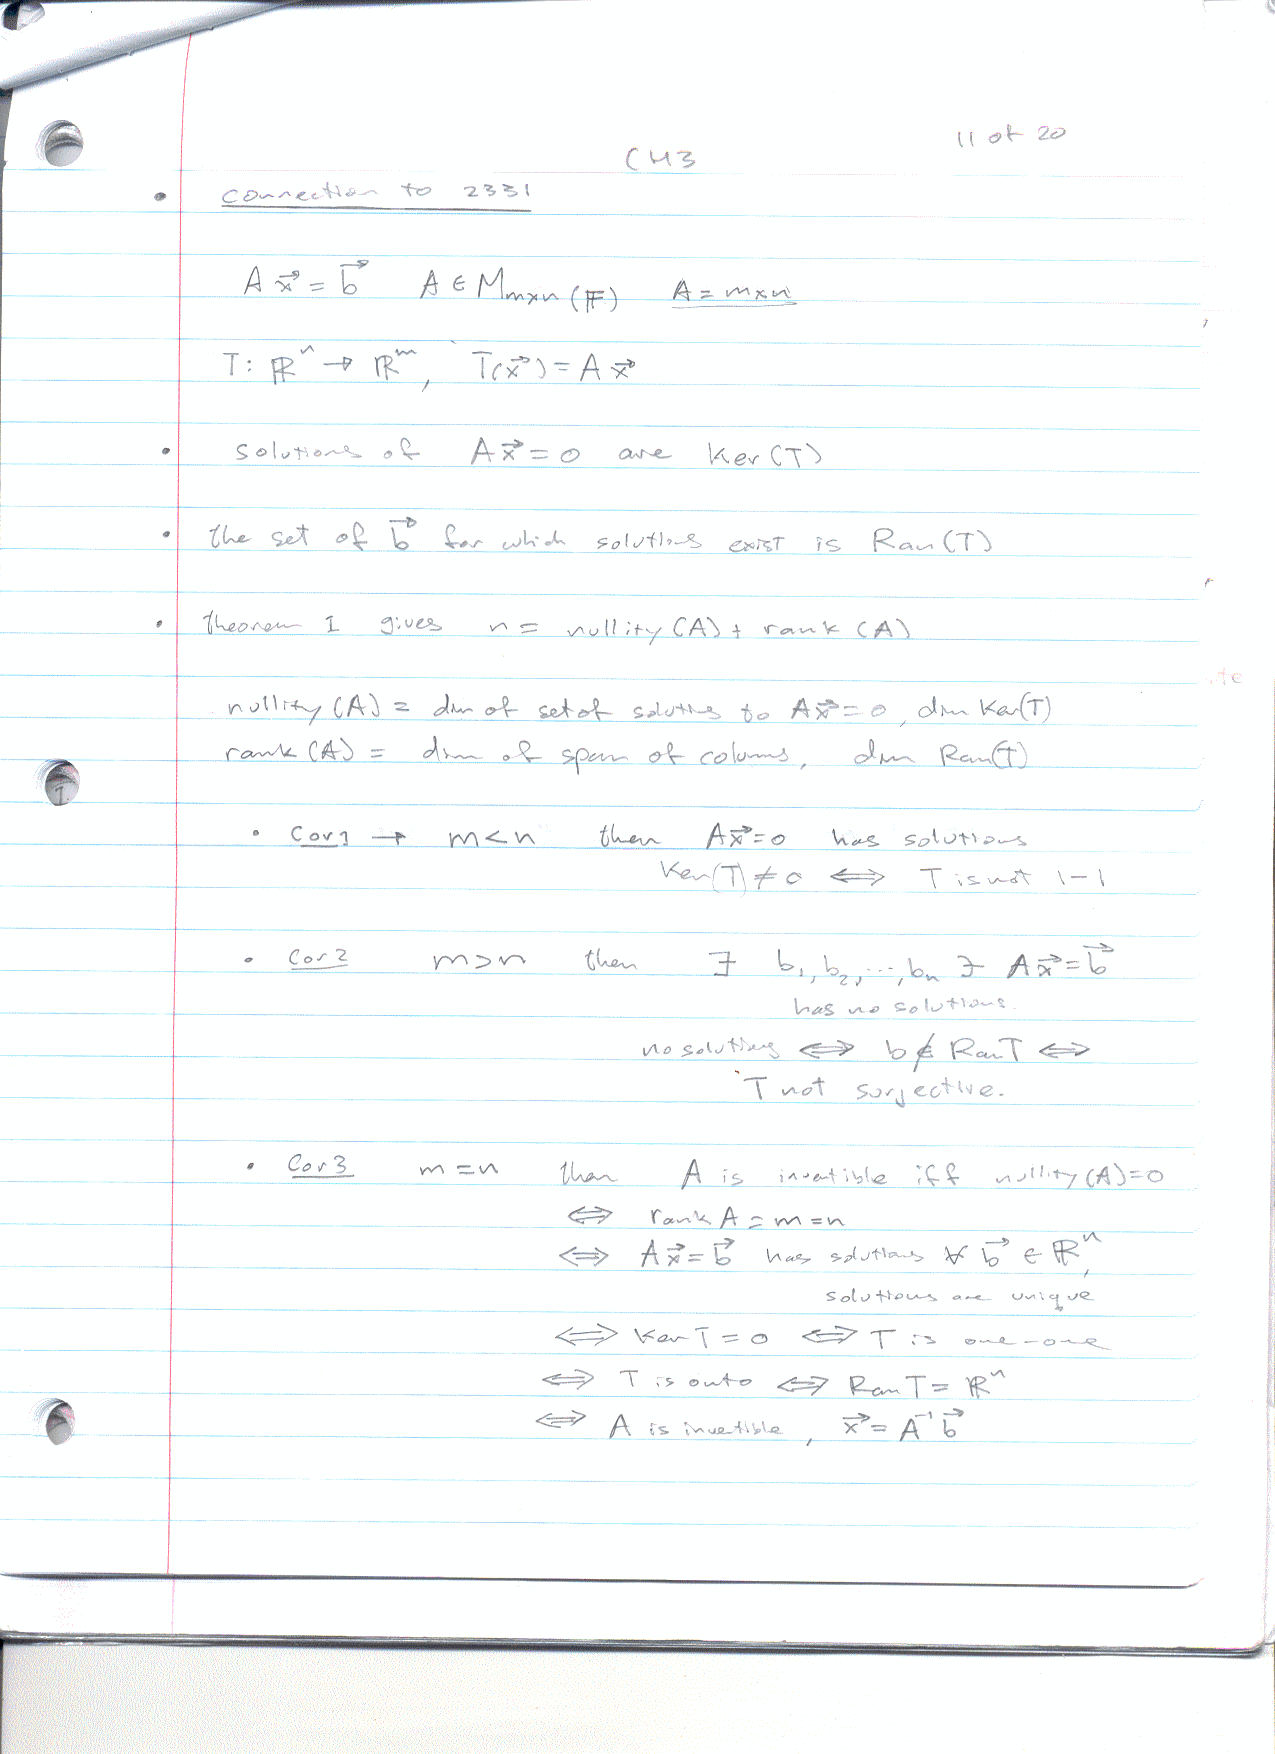 11 of 20
CH3
• connection to 2331
A x⃗ = b⃗   A ∈ M_{m×n} (𝔽)   A = m×n
T: ℝⁿ → ℝᵐ, T(x⃗) = A x⃗
• solutions of A x⃗ = 0 are Ker(T)
• the set of b⃗ for which solutions exist is Ran(T)
• theorem 1 gives n = nullity(A) + rank(A)
nullity(A) = dim of set of solutions to A x⃗ = 0, dim Ker(T)
rank(A) = dim of span of columns, dim Ran(T)
• Cor 1 → m < n then A x⃗ = 0 has solutions
Ker(T) ≠ 0 ⟺ T is not 1-1
• Cor 2 m > n then ∃ b₁, b₂, ..., bₙ ∋ A x⃗ = b⃗
has no solutions.
no solutions ⟺ b ∉ Ran T ⟺
T not surjective.
• Cor 3 m = n then A is invertible iff nullity(A) = 0
⟺ rank A = m = n
⟺ A x⃗ = b⃗ has solutions ∀ b⃗ ∈ ℝⁿ,
solutions are unique
⟺ Ker T = 0 ⟺ T is one-one
⟺ T is onto ⟺ Ran T = ℝⁿ
⟺ A is invertible, x⃗ = A⁻¹ b⃗